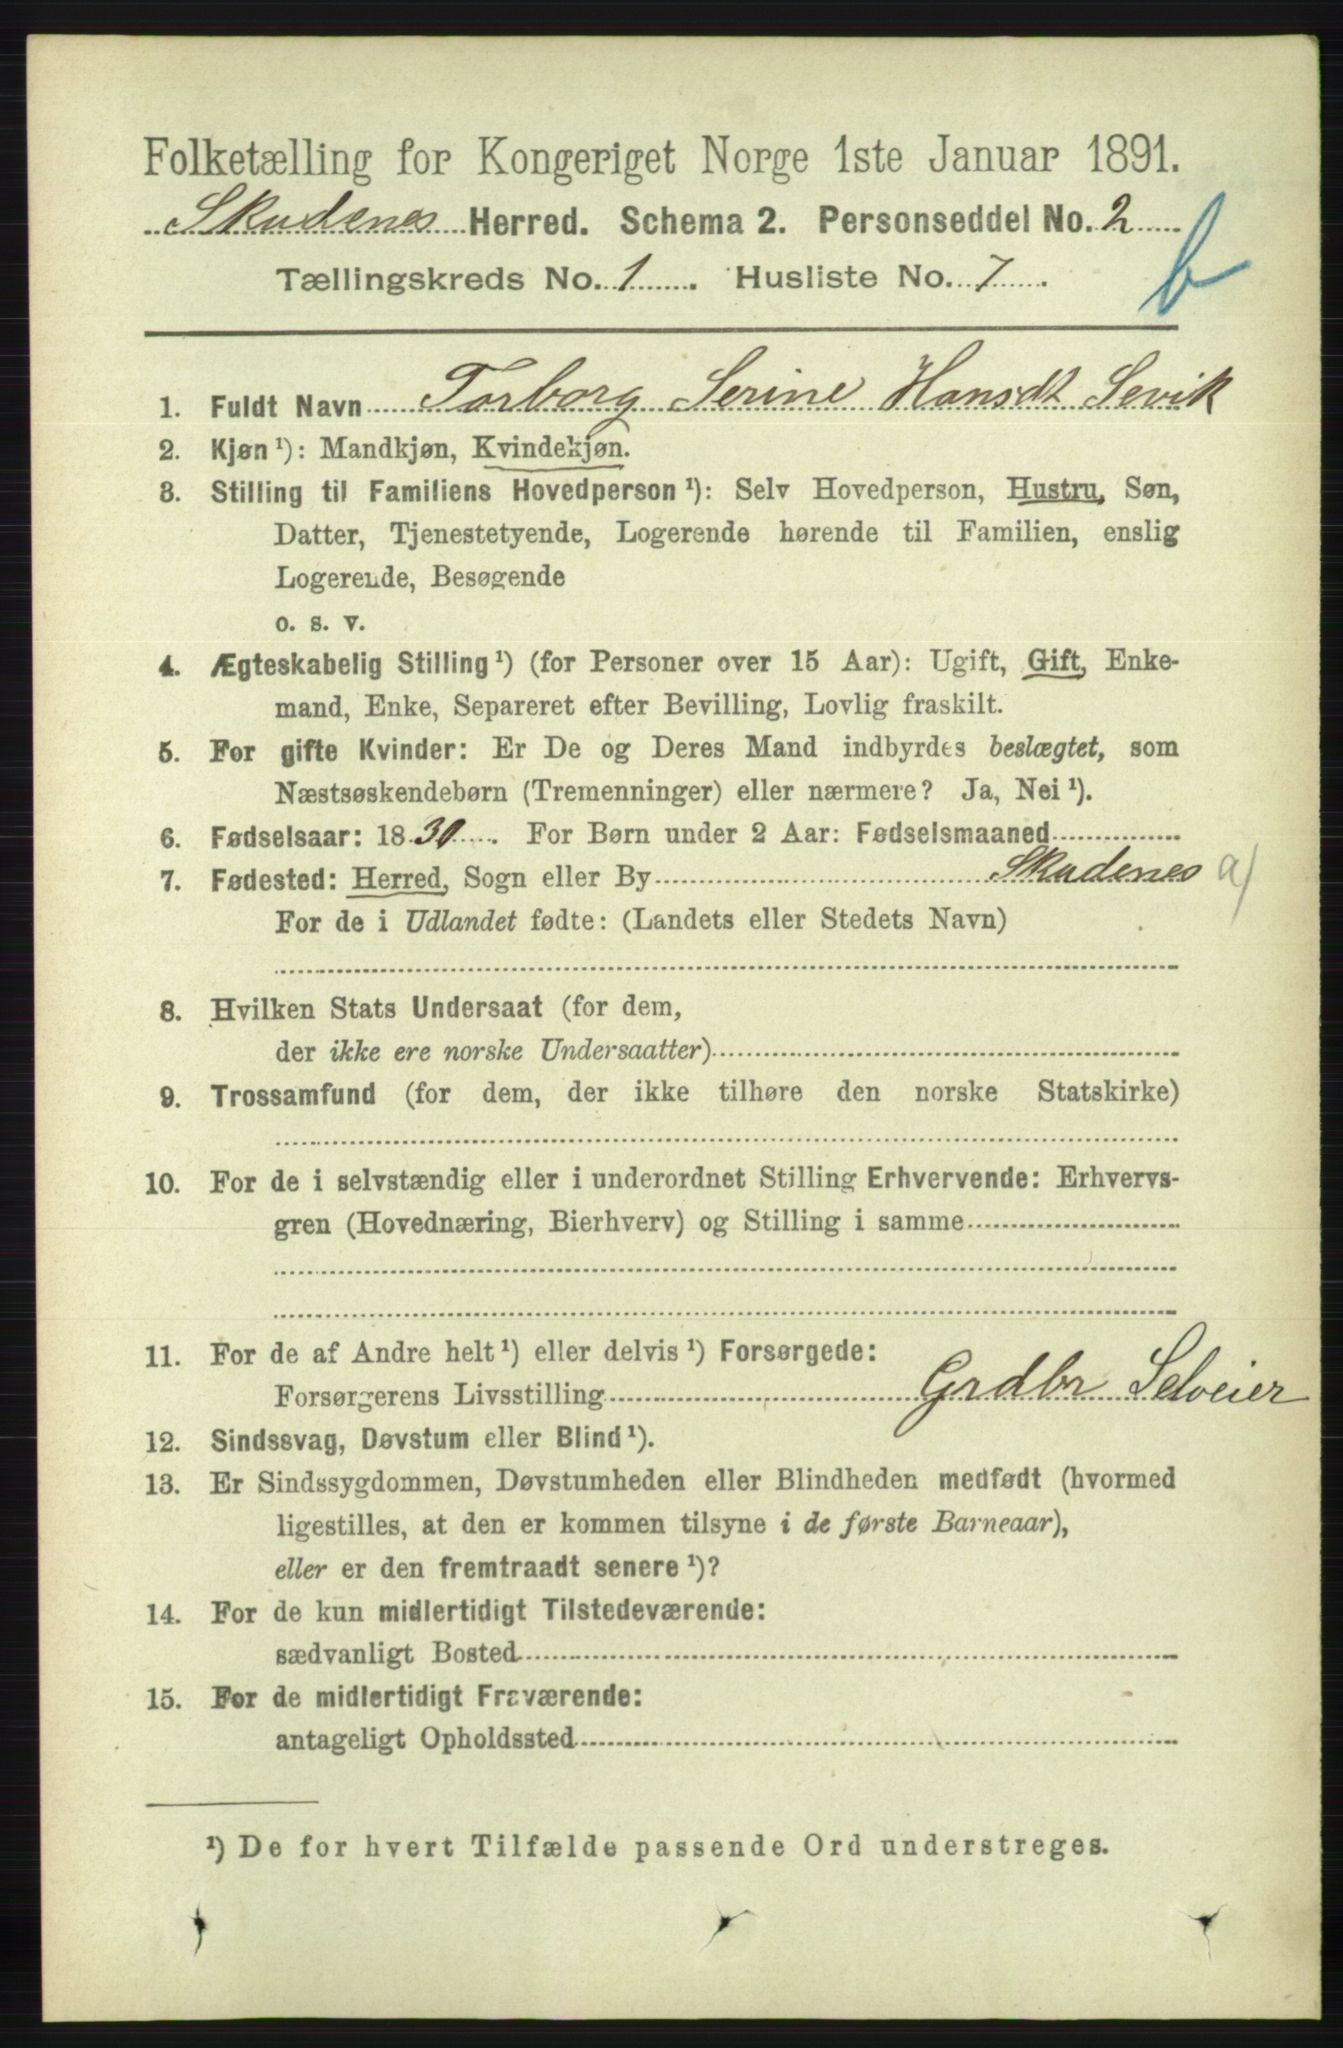 Folketælling for Kongeriget Norge 1ste Januar 1891.
Skudenes Herred. Schema 2. Personseddel No. 2
Tællingskreds No. 1. Husliste No. 7. b
1. Fuldt Navn Torborg Serine Hansdt Sevik
2. Kjøn ¹): Mandkjøn, Kvindekjøn.
3. Stilling til Familiens Hovedperson ¹): Selv Hovedperson, Hustru, Søn,
Datter, Tjenestetyende, Logerende hørende til Familien, enslig
Logerende, Besøgende
o. s. v.
4. Ægteskabelig Stilling ¹) (for Personer over 15 Aar): Ugift, Gift, Enke-
mand, Enke, Separeret efter Bevilling, Lovlig fraskilt.
5. For gifte Kvinder: Er De og Deres Mand indbyrdes beslægtet, som
Næstsøskendebørn (Tremenninger) eller nærmere? Ja, Nei ¹).
6. Fødselsaar: 1830. For Børn under 2 Aar: Fødselsmaaned
7. Fødested: Herred, Sogn eller By Skudenes a)
For de i Udlandet fødte: (Landets eller Stedets Navn)
8. Hvilken Stats Undersaat (for dem,
der ikke ere norske Undersaatter)
9. Trossamfund (for dem, der ikke tilhøre den norske Statskirke)
10. For de i selvstændig eller i underordnet Stilling Erhvervende: Erhvervs-
gren (Hovednæring, Bierhverv) og Stilling i samme
11. For de af Andre helt ¹) eller delvis ¹) Forsørgede:
Forsørgerens Livsstilling Grdbr Selveier
12. Sindssvag, Døvstum eller Blind ¹).
13. Er Sindssygdommen, Døvstumheden eller Blindheden medfødt (hvormed
ligestilles, at den er kommen tilsyne i de første Barneaar),
eller er den fremtraadt senere ¹)?
14. For de kun midlertidigt Tilstedeværende:
sædvanligt Bosted
15. For de midlertidigt Fraværende:
antageligt Opholdssted
¹) De for hvert Tilfælde passende Ord understreges.